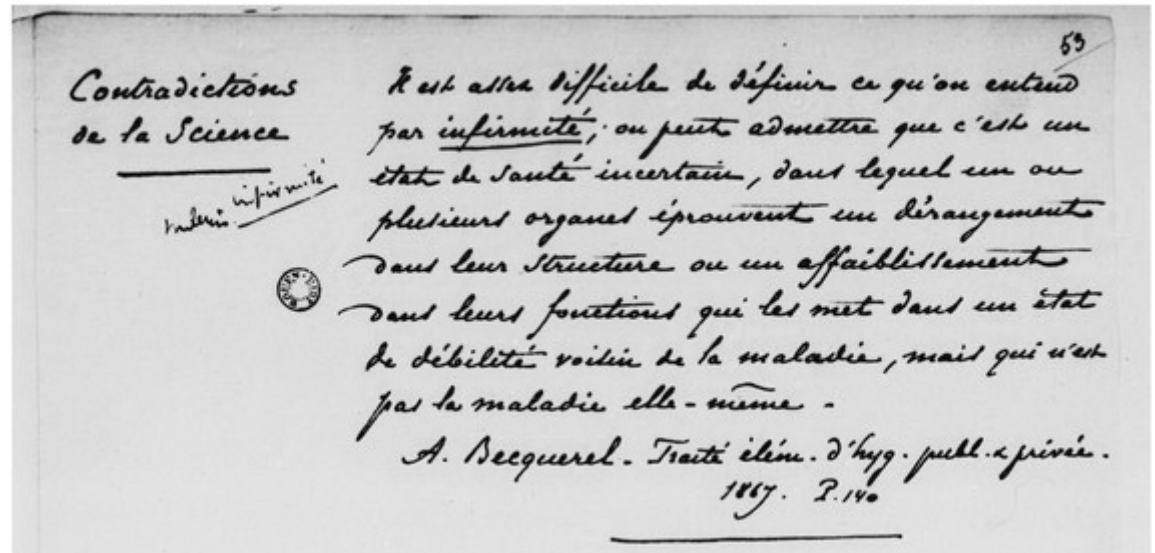 53
Contradictions
de la Science
infirmité
Il est assez difficile de définir ce qu'on entend
par infirmité; on peut admettre que c'est un
état de santé incertain, dans lequel un ou
plusieurs organes éprouvent un dérangement
dans leur structure ou un affaiblissement
dans leurs fonctions qui les met dans un état
de débilité voisin de la maladie, mais qui n'est
pas la maladie elle-même -
A. Becquerel - Traité élém. d'hyg. publ. & privée.
1867. P. 140